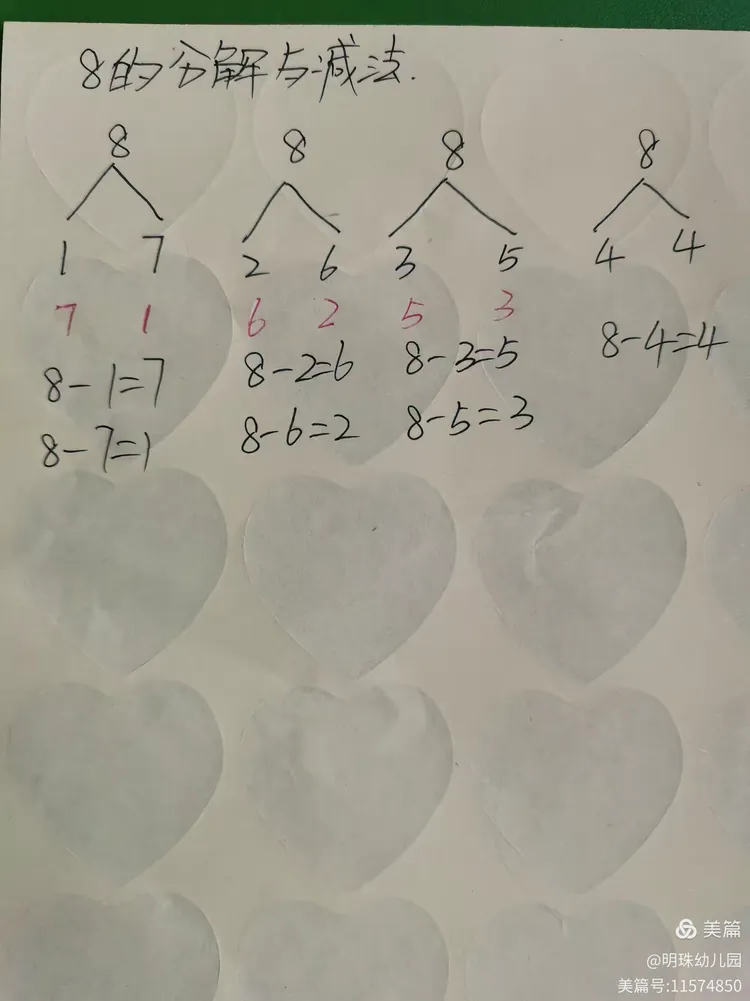 8的分解与减法.
8 8 8 8
1 7 2 6 3 5 4 4
7 1 6 2 5 3
8-1=7 8-2=6 8-3=5 8-4=4
8-7=1 8-6=2 8-5=3
美篇
@明珠幼儿园
美篇号:11574850